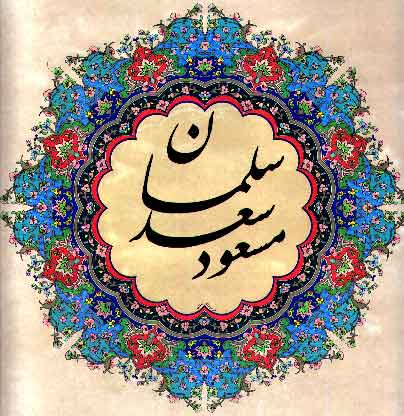 مسعود
سعد
سلمان